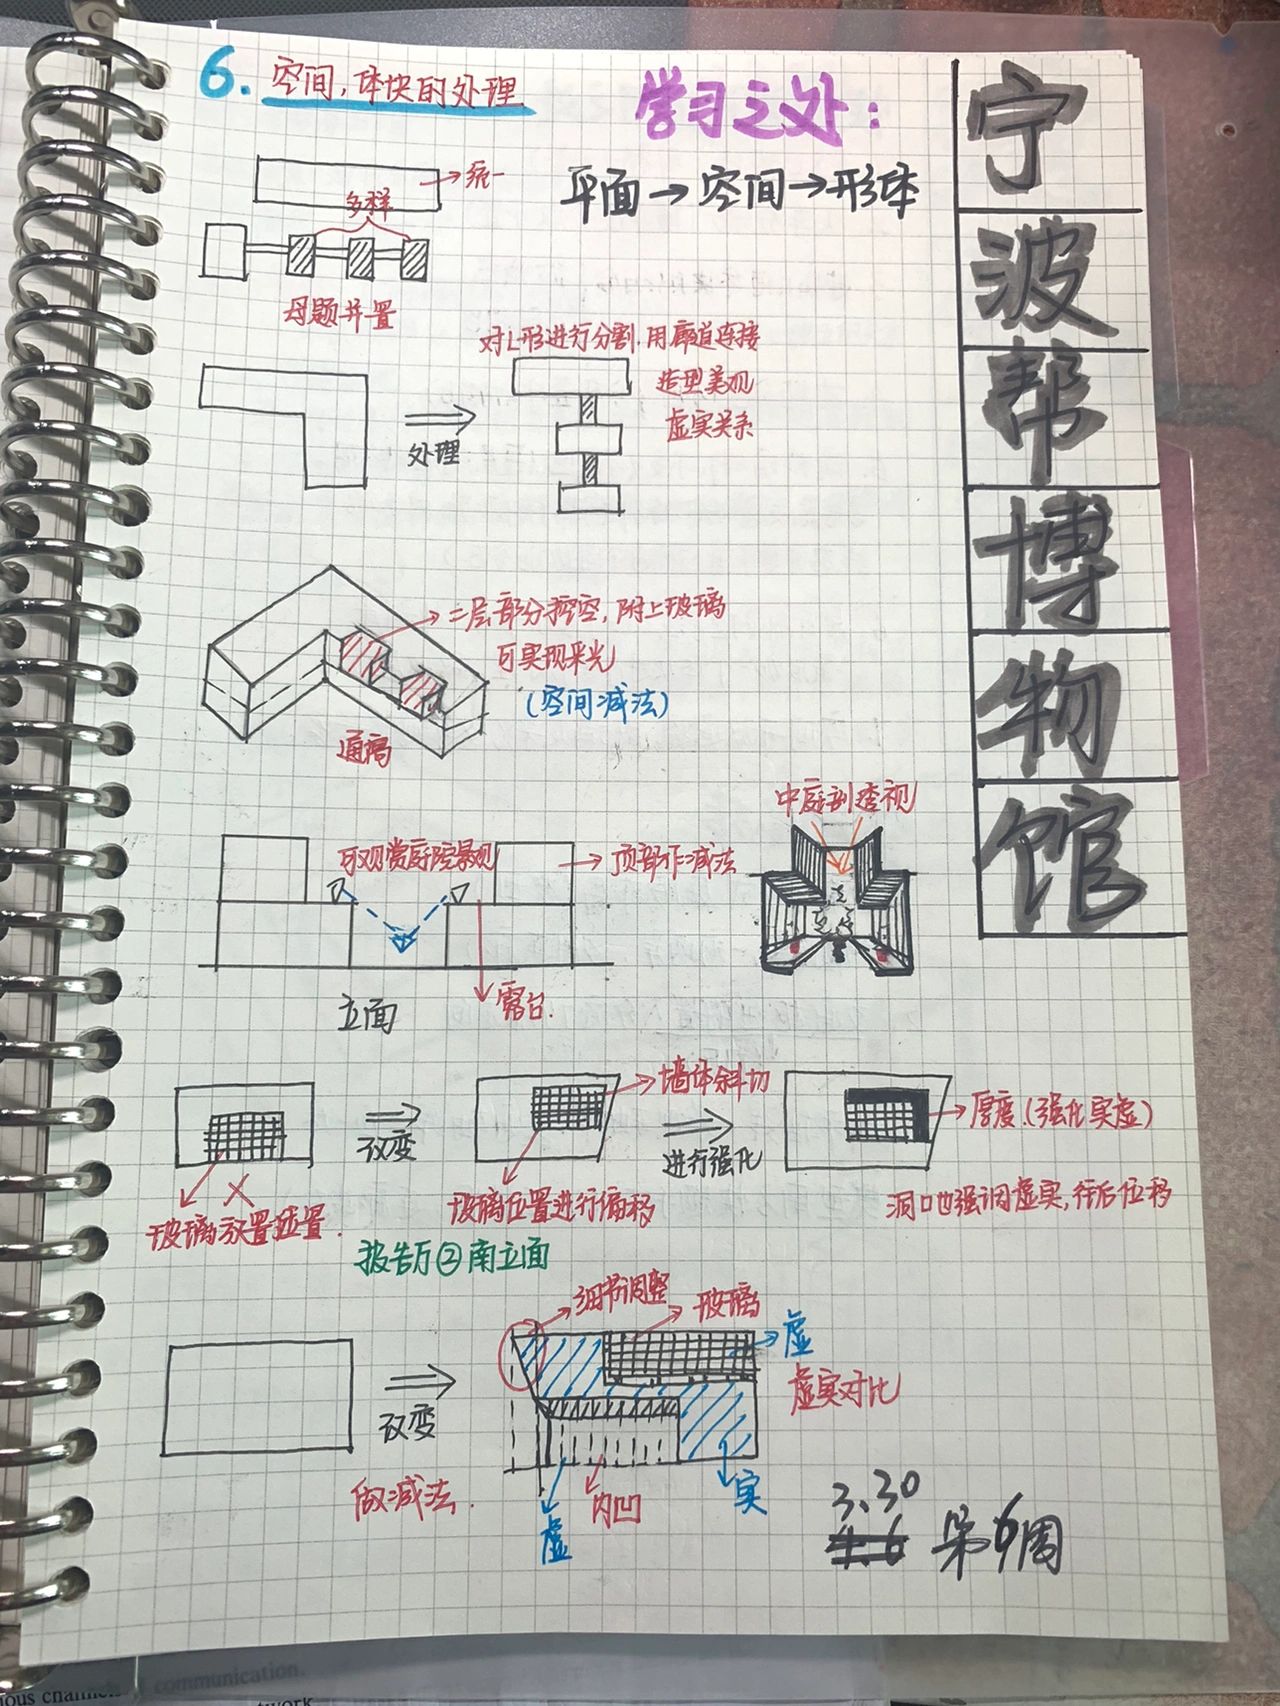 6. 空间，体块的处理
学习之处：
平面→空间→形体
统一
多样
母题并置
对L形进行分割.用廊道连接
造型美观
虚实关系
处理
二层部分挖空，附上玻璃
可实现采光
(空间减法)
通高
中庭剖透视
可观赏庭院景观
顶部作减法
露台.
立面
墙体斜切
改变
进行强化
厚度.(强化实虚)
玻璃放置
玻璃位置进行偏移
洞口也强调虚实,往后位移
报告厅②南立面
细节调整
玻璃
虚
虚实对比
改变
做减法.
虚
内凹
实
3.30
4.6 第6周
宁
波
帮
博
物
馆
ious channels of communication.
twork